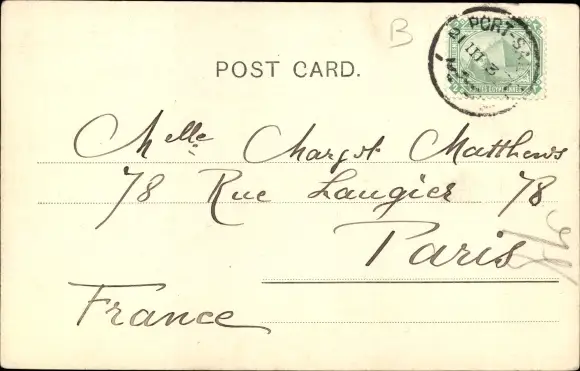 B
PORT-SA
21 III 3
POST CARD.
Melle Margot Matthews
78 Rue Laugier 78
Paris
France